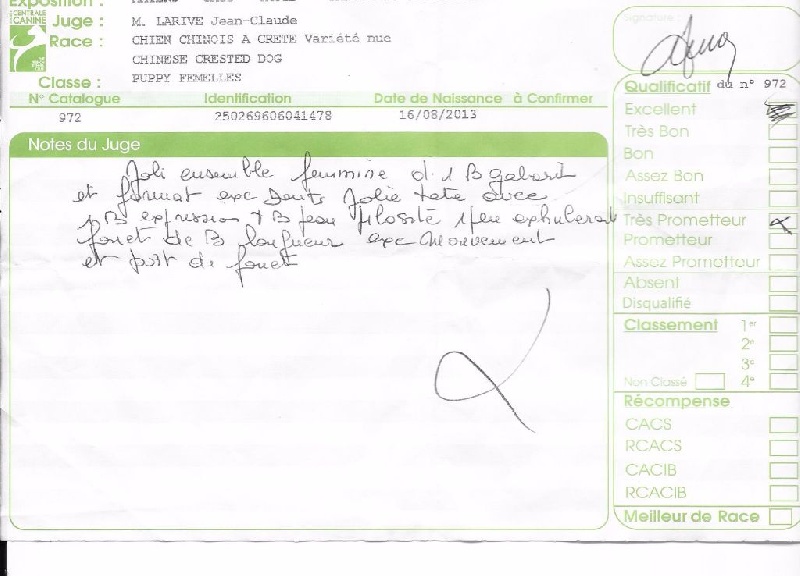 Exposition :
CENTRALE
CANINE
Juge : M. LARIVE Jean-Claude
Race : CHIEN CHINOIS A CRETE Variété nue
CHINESE CRESTED DOG
Classe : PUPPY FEMELLES
N° Catalogue Identification Date de Naissance à Confirmer
972 250269606041478 16/08/2013
Notes du Juge
Joli ensemble feminine d'1 B gabarit
et format exc Dents Jolie tete avec
B expression + B peau pilosité 1 peu exhuberat
fouet de B longueur exc Mouvement
et port de fouet
Signature :
Qualificatif du n° 972
Excellent
Très Bon
Bon
Assez Bon
Insuffisant
Très Prometteur
Prometteur
Assez Prometteur
Absent
Disqualifié
Classement 1er
2e
3e
Non Classé 4e
Récompense
CACS
RCACS
CACIB
RCACIB
Meilleur de Race